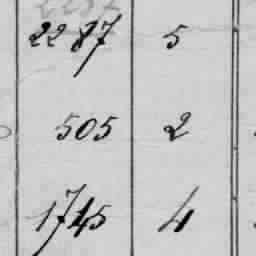 2287 5
505 2
1745 4